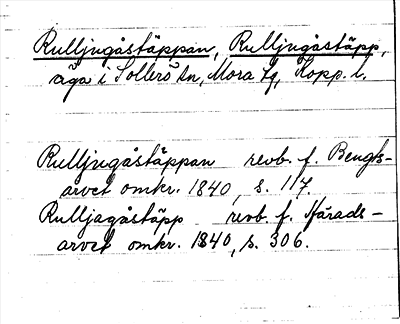 Rulljugåstäppan, Rulljugåstäpp,
äga i Sollerö sn, Mora tg, Kopp. l.
Rulljugåstäppan revb. f. Bengts-
arvet omkr. 1840, s. 117.
Rulljagåstäpp revb. f. Härads-
arvet omkr. 1840, s. 306.